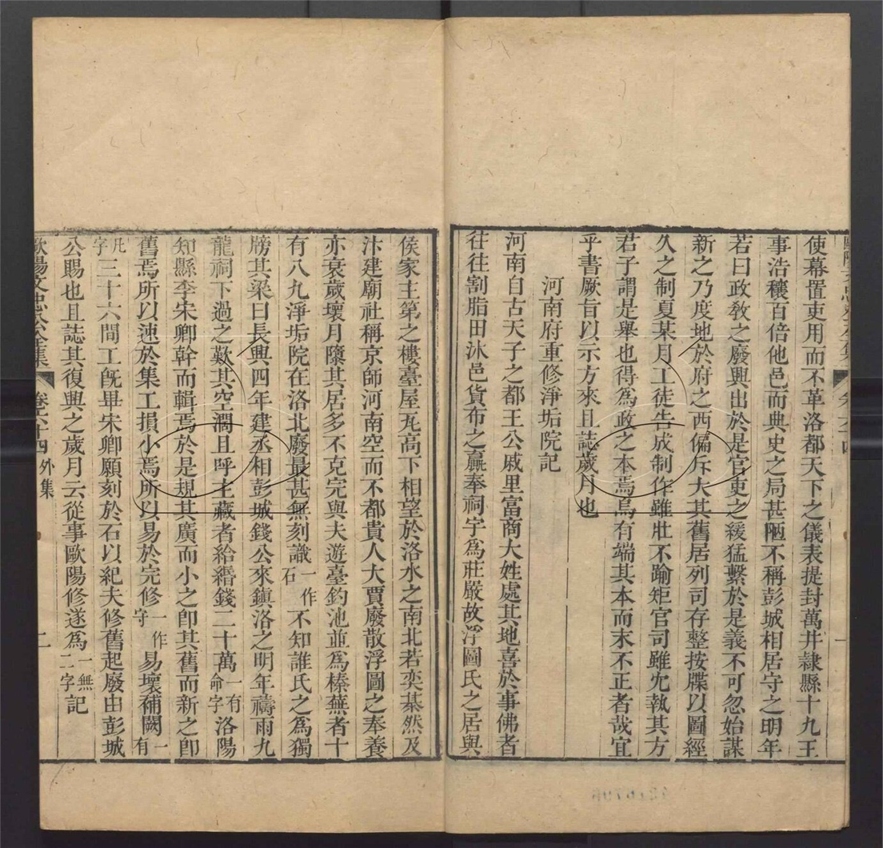 使幕置吏用而不革洛都天下之儀表提封萬井隷縣十九王
事浩穰百倍他邑而典史之局甚陋不稱彭城相居守之明年
若曰政敎之廢興出於是官吏之緩猛繫於是義不可忽始謀
新之乃度地於府之西偏斥大其舊居列司存整按牒以圖經
久之制夏某月工徒告成制作雖壯不踰矩官司雖冗執其方
君子謂是舉也得爲政之本焉烏有端其本而末不正者哉宜
乎書厥旨以示方來且誌歲月也
河南府重修淨垢院記
河南自古天子之都王公戚里富商大姓處其地喜於事佛者
往往割脂田沐邑貨布之贏奉祠宇爲莊嚴故浮圖氏之居與
侯家主第之樓臺屋瓦高下相望於洛水之南北若奕棊然及
汴建廟社稱京師河南空而不都貴人大賈廢散浮圖之奉養
亦衰歲壞月隳其居多不克完與夫遊臺釣池並爲榛蕪者十
有八九淨垢院在洛北廢最甚無刻識一作石不知誰氏之爲獨
牓其梁曰長興四年建丞相彭城錢公來鎭洛之明年禱雨九
龍祠下過之歎其空濶且呼主藏者給緡錢二十萬一有命字洛陽
知縣李宋卿幹而輯焉於是規其廣而小之卽其舊而新之卽
舊焉所以速於集工損小焉所以易於完修一作守易壞補闕一有
凡字三十六間工旣畢宋卿願刻於石以紀夫修舊起廢由彭城
公賜也且誌其復興之歲月云從事歐陽修遂爲一無二字記
歐陽文忠公全集 卷六十四 外集 二